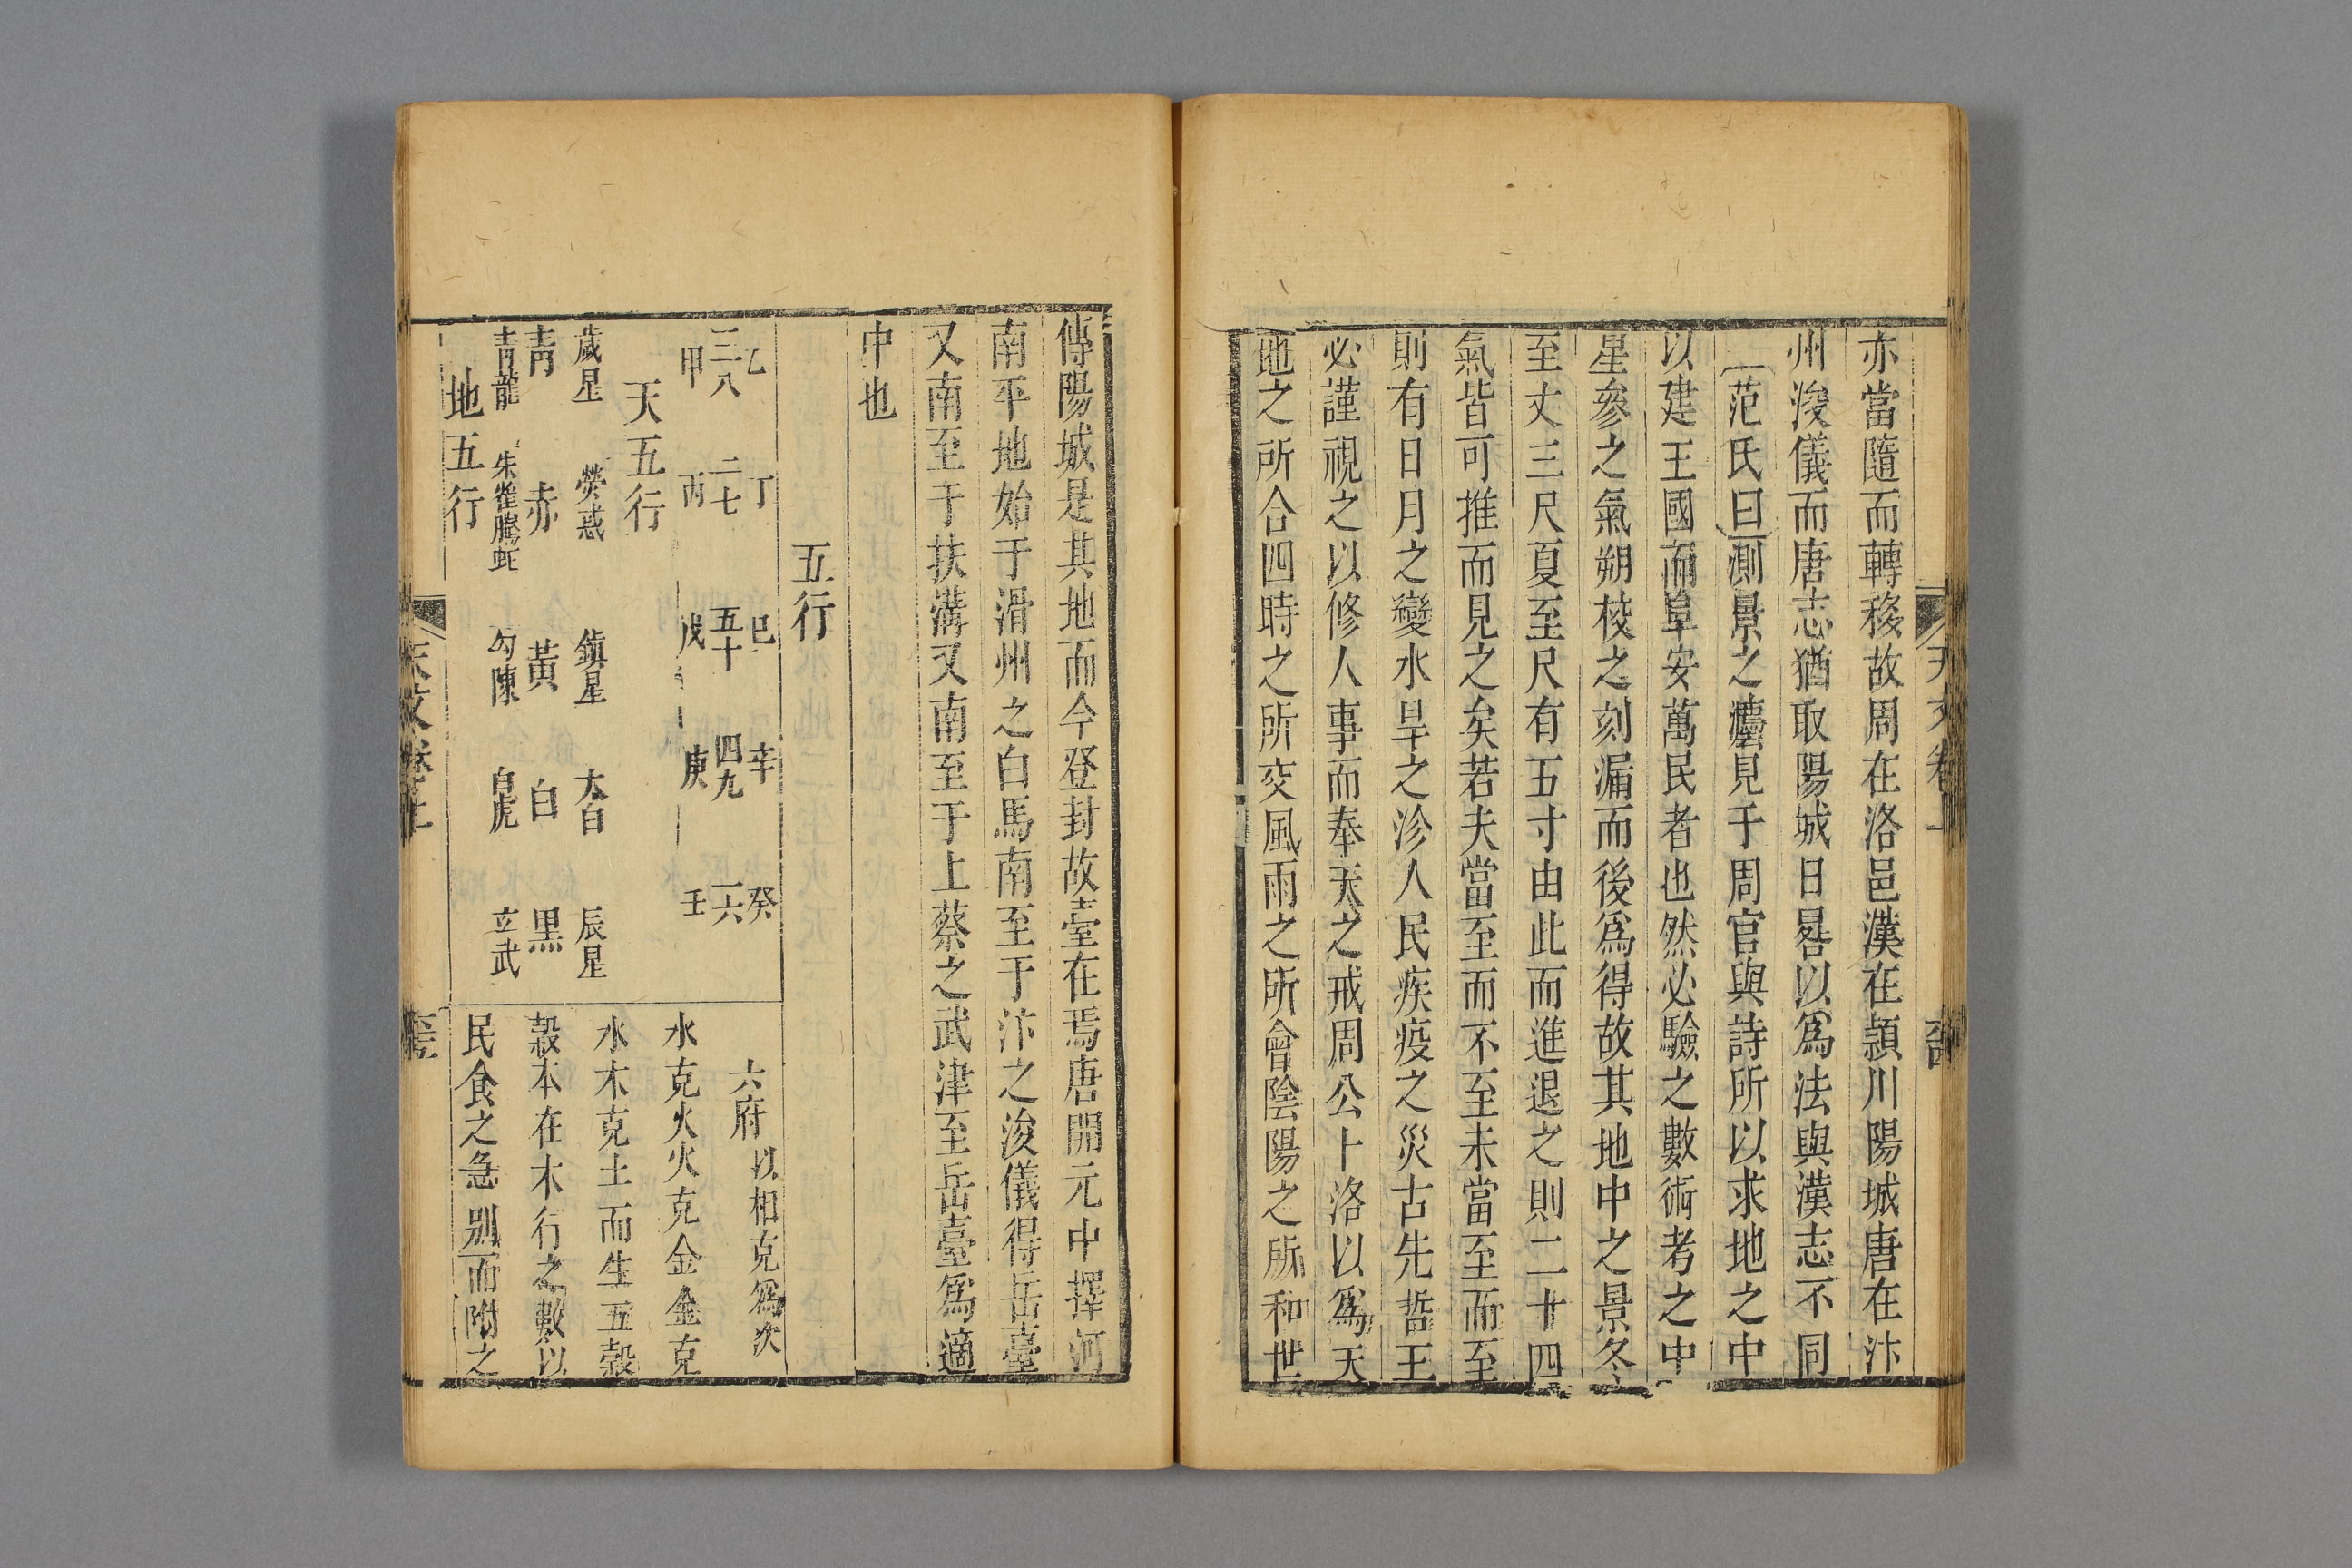 亦當隨而轉移故周在洛邑漢在潁川陽城唐在汴
州浚儀而唐志猶取陽城日晷以爲法與漢志不同
范氏曰測景之臺見于周官與詩所以求地之中
以建王國而阜安萬民者也然必驗之數術考之中
星參之氣朔校之刻漏而後爲得故其地中之景冬
至丈三尺夏至尺有五寸由此而進退之則二十四
氣皆可推而見之矣若夫當至而不至未當至而至
則有日月之變水旱之沴人民疾疫之災古先哲王
必謹視之以修人事而奉天之戒周公卜洛以爲天
地之所合四時之所交風雨之所會陰陽之所和世
傳陽城是其地而今登封故臺在焉唐開元中擇河
南平地始于滑州之白馬南至于汴之浚儀得岳臺
又南至于扶溝又南至于上蔡之武津至岳臺爲適
中也
五行
乙 丁 巳 辛 癸
三八 二七 五十 四九 一六
甲 丙 戊 庚 壬
天五行
歲星 熒惑 鎮星 太白 辰星
靑 赤 黃 白 黒
靑龍 朱雀騰蛇 勾陳 白虎 玄武
地五行
六府 以相克爲次
水克火火克金金克
水木克土而生五穀
穀本在木行之數以
民食之急別而附之
天文卷上